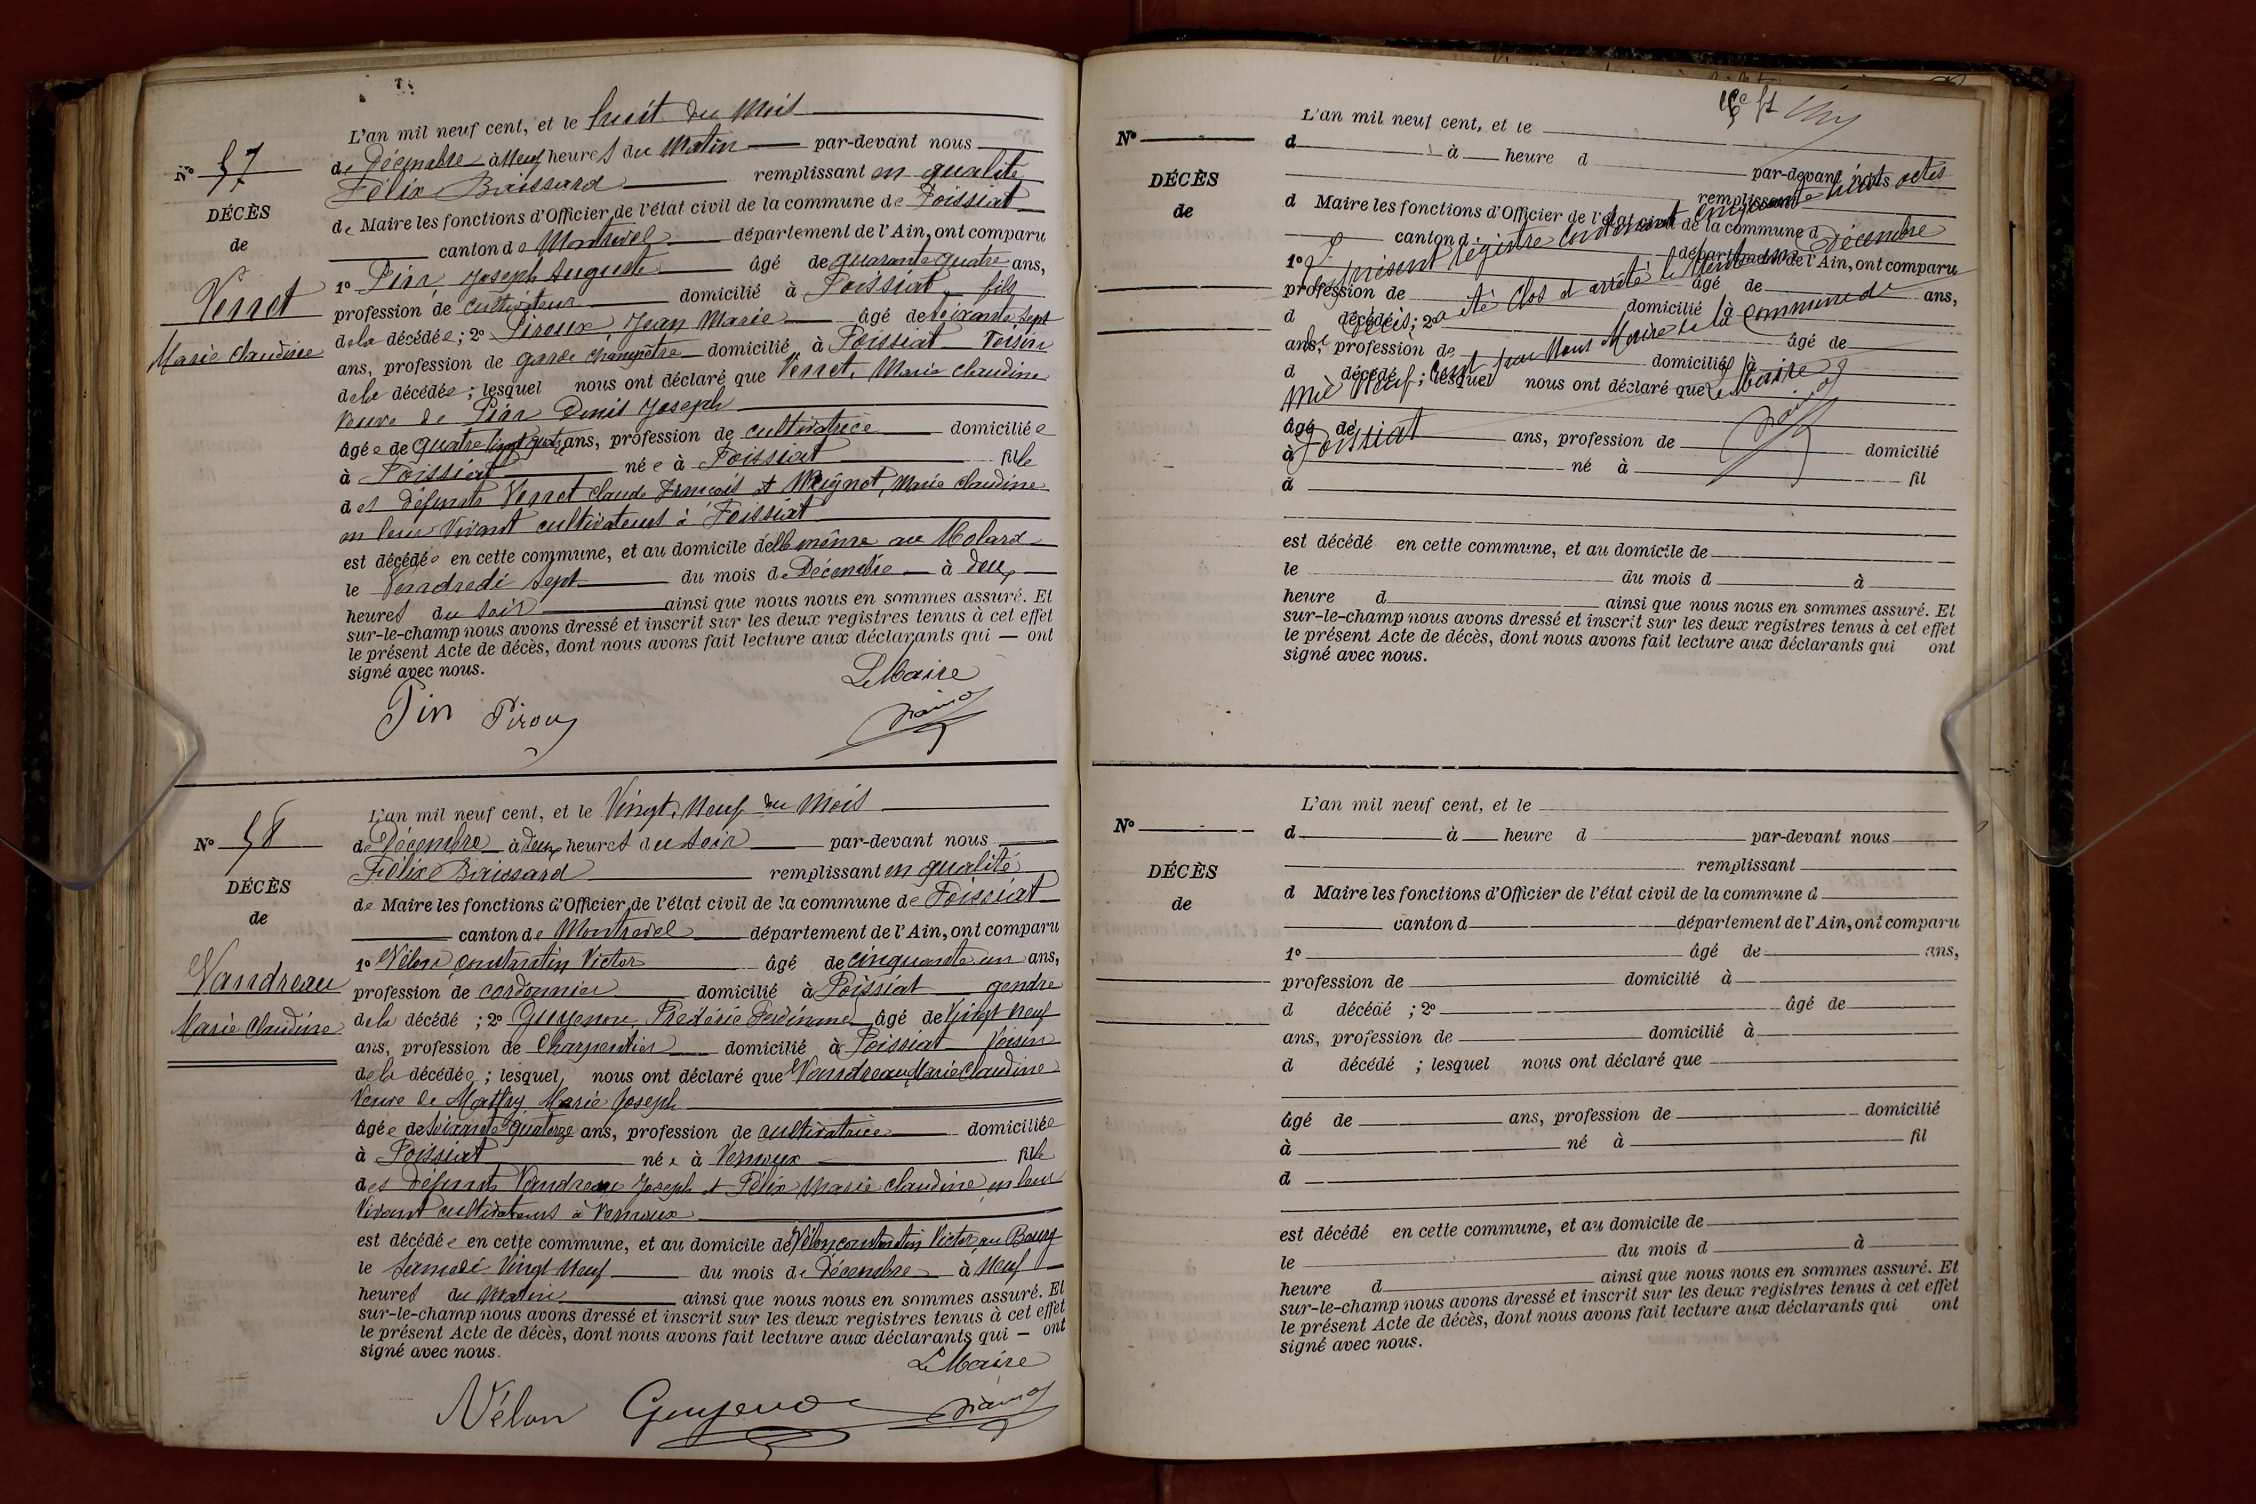 L'an mil neuf cent, et le huit du mois
No 57
de Décembre à Neuf heures du Matin par-devant nous
Félix Boissard remplissant en qualité
DÉCÈS
de Maire les fonctions d'Officier de l'état civil de la commune de Foissiat
de
canton de Montrevel département de l'Ain, ont comparu
1o Pin, Joseph Auguste âgé de quarante quatre ans,
Verret
profession de cultivateur domicilié à Foissiat fils
de la décédée ; 2o Piroux Jean Marie âgé de soixante sept
Marie Claudine
ans, profession de garde champêtre domicilié à Foissiat Voisin
de la décédée ; lesquel nous ont déclaré que Verret, Marie Claudine
Veuve de Pin Denis Joseph
âgée de quatre vingt quatre ans, profession de cultivatrice domiciliée
à Foissiat née à Foissiat fille
des défunts Verret Claude François et Meignot, Marie Claudine
en leur Vivant cultivateurs à Foissiat
est décédée en cette commune, et au domicile d'elle même au Molard
le Vendredi sept du mois de Décembre à deux
heures du soir ainsi que nous nous en sommes assuré. Et
sur-le-champ nous avons dressé et inscrit sur les deux registres tenus à cet effet
le présent Acte de décès, dont nous avons fait lecture aux déclarants qui — ont
signé avec nous.
Le Maire
Pin Piroux
L'an mil neuf cent, et le Vingt Neuf du Mois
No 58
de Décembre à deux heures du soir par-devant nous
Félix Boissard remplissant en qualité
DÉCÈS
de Maire les fonctions d'Officier de l'état civil de la commune de Foissiat
de
canton de Montrevel département de l'Ain, ont comparu
1o Vélon Constantin Victor âgé de cinquante un ans,
Vandreau
profession de cordonnier domicilié à Foissiat gendre
de la décédé ; 2o Guyenon Frédéric Ferdinand âgé de Vingt neuf
Marie Claudine
ans, profession de Charpentier domicilié à Foissiat Voisin
de la décédée ; lesquel nous ont déclaré que Vandreau Marie Claudine
Veuve de Marie Joseph
âgée de soixante quatorze ans, profession de cultivatrice domiciliée
à Foissiat née à Vernoux fille
des défunts Vandreau Joseph et Félix Marie Claudine en leur
Vivant cultivateurs à Vernoux
est décédée en cette commune, et au domicile de Vélon Constantin Victor au Bourg
le samedi Vingt Neuf du mois de Décembre à Neuf
heures du Matin ainsi que nous nous en sommes assuré. Et
sur-le-champ nous avons dressé et inscrit sur les deux registres tenus à cet effet
le présent Acte de décès, dont nous avons fait lecture aux déclarants qui — ont
signé avec nous.
Le Maire
Vélon Guyenon
L'an mil neuf cent, et le
No
d à heure d par-devant nous
remplissant
DÉCÈS
d Maire les fonctions d'Officier de l'état civil de la commune d
de
canton d département de l'Ain, ont comparu
1o âgé de ans,
profession de domicilié à
d décédé ; 2o âgé de
ans, profession de domicilié à
d décédé ; lesquel nous ont déclaré que
âgé de ans, profession de domicilié
à né à fil
d
Le présent registre contenant cinquante huit actes
de Décès, a été clos et arrêté le trente un Décembre
Mil Neuf Cent par Nous Maire de la Commune de
Foissiat
Le Maire
est décédé en cette commune, et au domicile de
le du mois d à
heure d ainsi que nous nous en sommes assuré. Et
sur-le-champ nous avons dressé et inscrit sur les deux registres tenus à cet effet
le présent Acte de décès, dont nous avons fait lecture aux déclarants qui ont
signé avec nous.
L'an mil neuf cent, et le
No
d à heure d par-devant nous
remplissant
DÉCÈS
d Maire les fonctions d'Officier de l'état civil de la commune d
de
canton d département de l'Ain, ont comparu
1o âgé de ans,
profession de domicilié à
d décédé ; 2o âgé de
ans, profession de domicilié à
d décédé ; lesquel nous ont déclaré que
âgé de ans, profession de domicilié
à né à fil
d
est décédé en cette commune, et au domicile de
le du mois d à
heure d ainsi que nous nous en sommes assuré. Et
sur-le-champ nous avons dressé et inscrit sur les deux registres tenus à cet effet
le présent Acte de décès, dont nous avons fait lecture aux déclarants qui ont
signé avec nous.